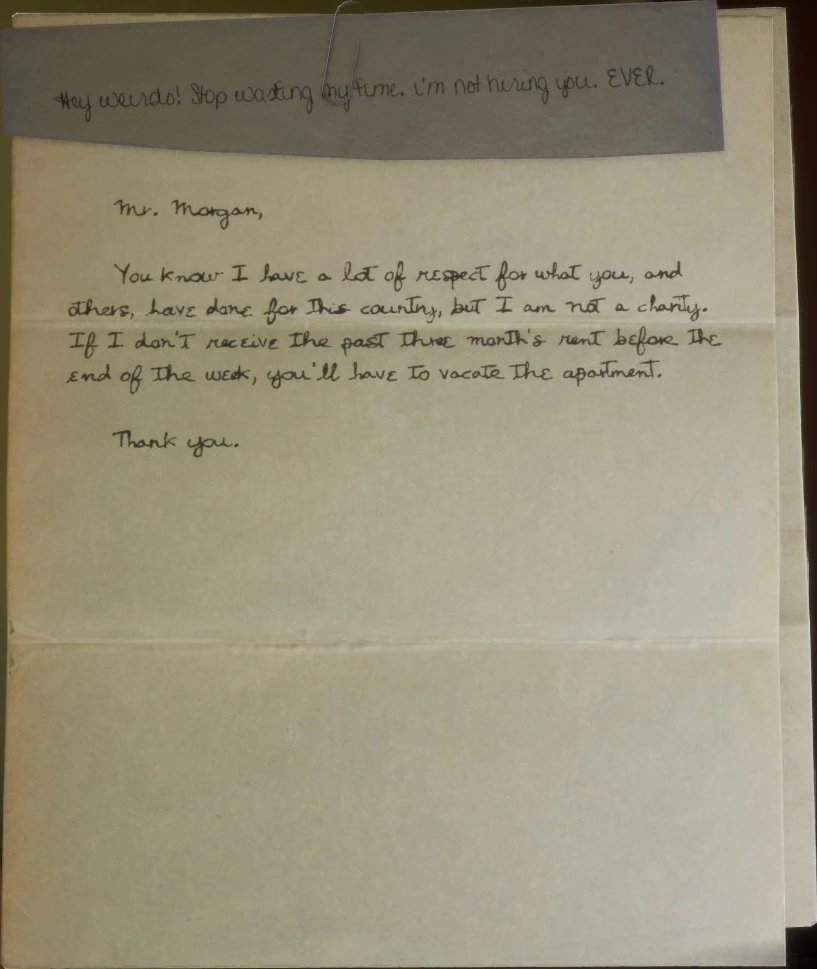 Hey weirdo! Stop wasting my time. i'm not hiring you. EVER.
Mr. Morgan,
You know I have a lot of respect for what you, and
others, have done for this country, but I am not a charity.
If I don't receive the past three month's rent before the
end of the week, you'll have to vacate the apartment.
Thank you.